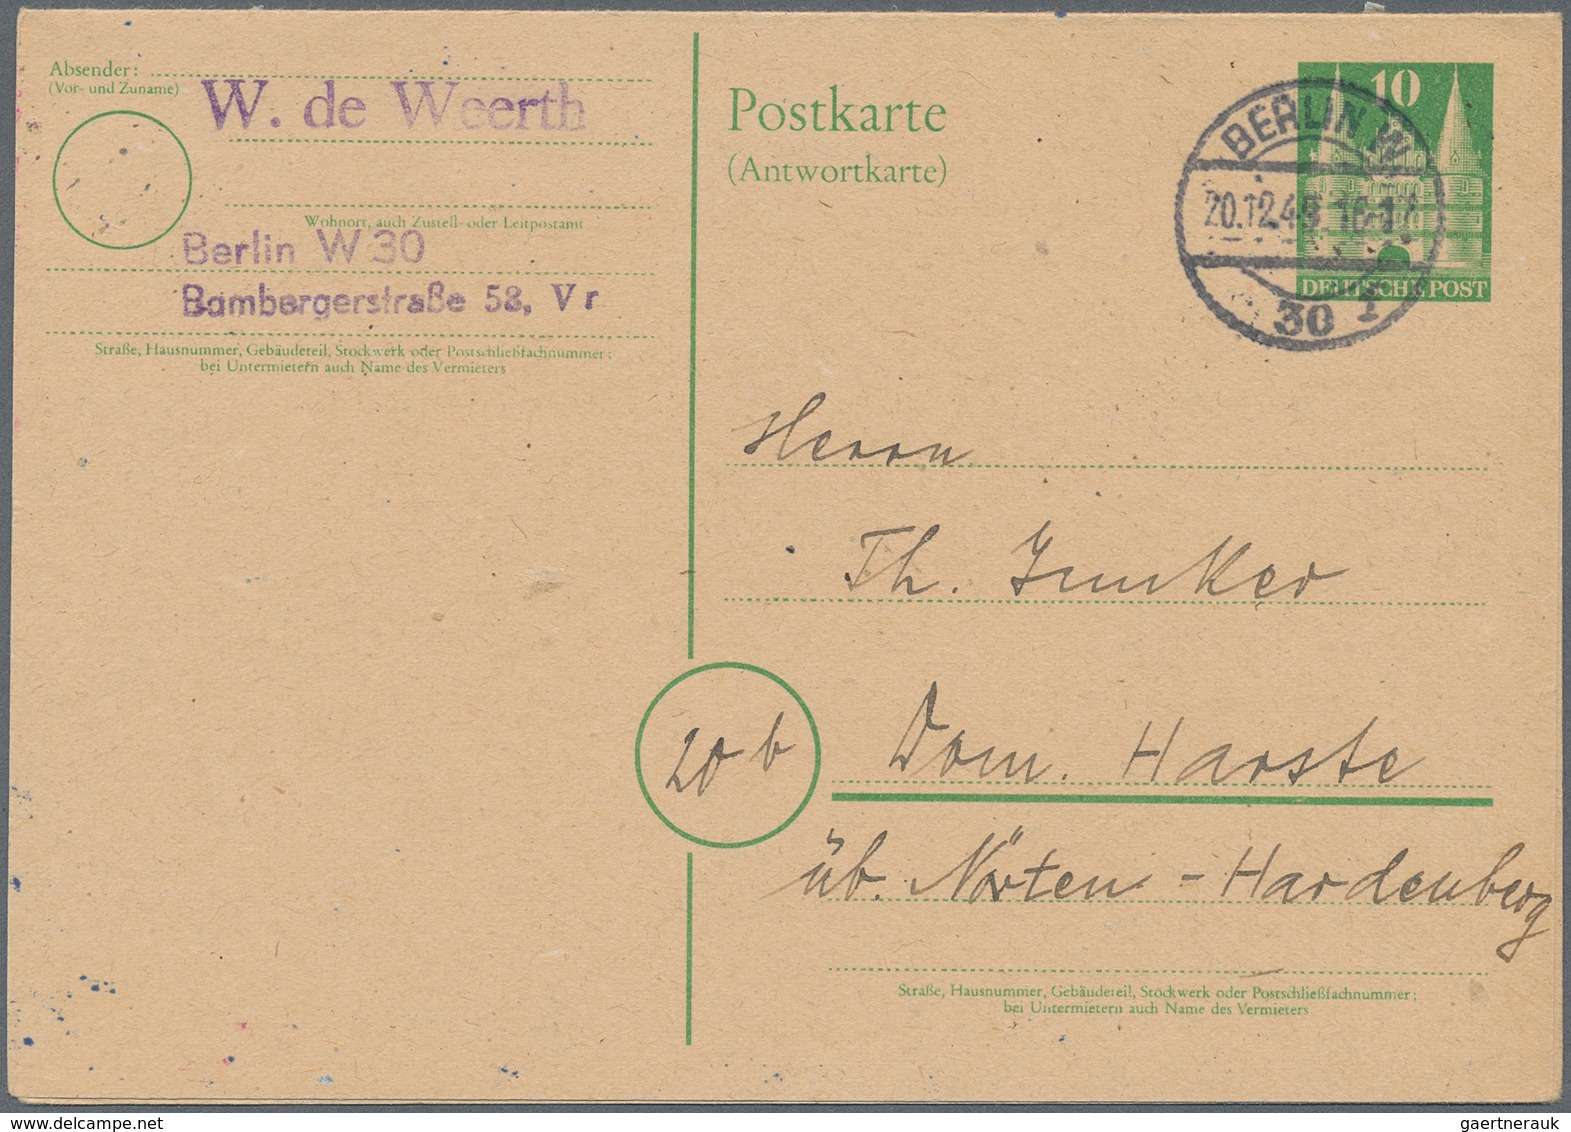 Absender:
(Vor- und Zuname)
W. de Weerth
Wohnort, auch Zustell- oder Leitpostamt
Berlin W 30
Bambergerstraße 58, Vr
Straße, Hausnummer, Gebäudeteil, Stockwerk oder Postschließfachnummer;
bei Untermietern auch Name des Vermieters
Postkarte
(Antwortkarte)
10
DEUTSCHE POST
BERLIN W
20.12.49.16-17
30
Herrn
Th. Junker
20b
Dom. Harste
üb. Nörten-Hardenberg
Straße, Hausnummer, Gebäudeteil, Stockwerk oder Postschließfachnummer;
bei Untermietern auch Name des Vermieters
gaertnerauk @ delcampe.net